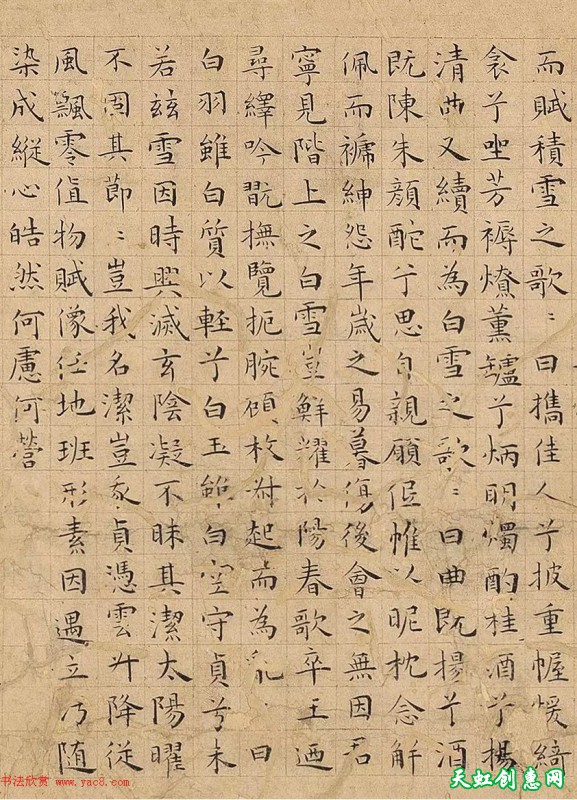 而賦積雪之歌〻曰攜佳人兮披重幄煖綺
衾兮坐芳褥燎薰鑪兮炳明燭酌桂酒兮揚
清曲又續而為白雪之歌〻曰曲既揚兮酒
既陳朱顏酡兮思自親願低帷以昵枕念解
佩而褫紳怨年歲之易暮傷後會之無因君
寧見階上之白雪豈鮮耀於陽春歌卒王迺
尋繹吟翫撫覽扼腕顧枚叔起而為亂曰
白羽雖白質以輕兮白玉雖白空守貞兮未
若玆雪因時興滅玄陰凝不昧其潔太陽曜
不固其節〻豈我名潔豈我貞憑雲升降從
風飄零值物賦像任地班形素因遇立乃隨
染成縱心皓然何慮何營
书法欣赏 www.yac8.com
天虹创惠网